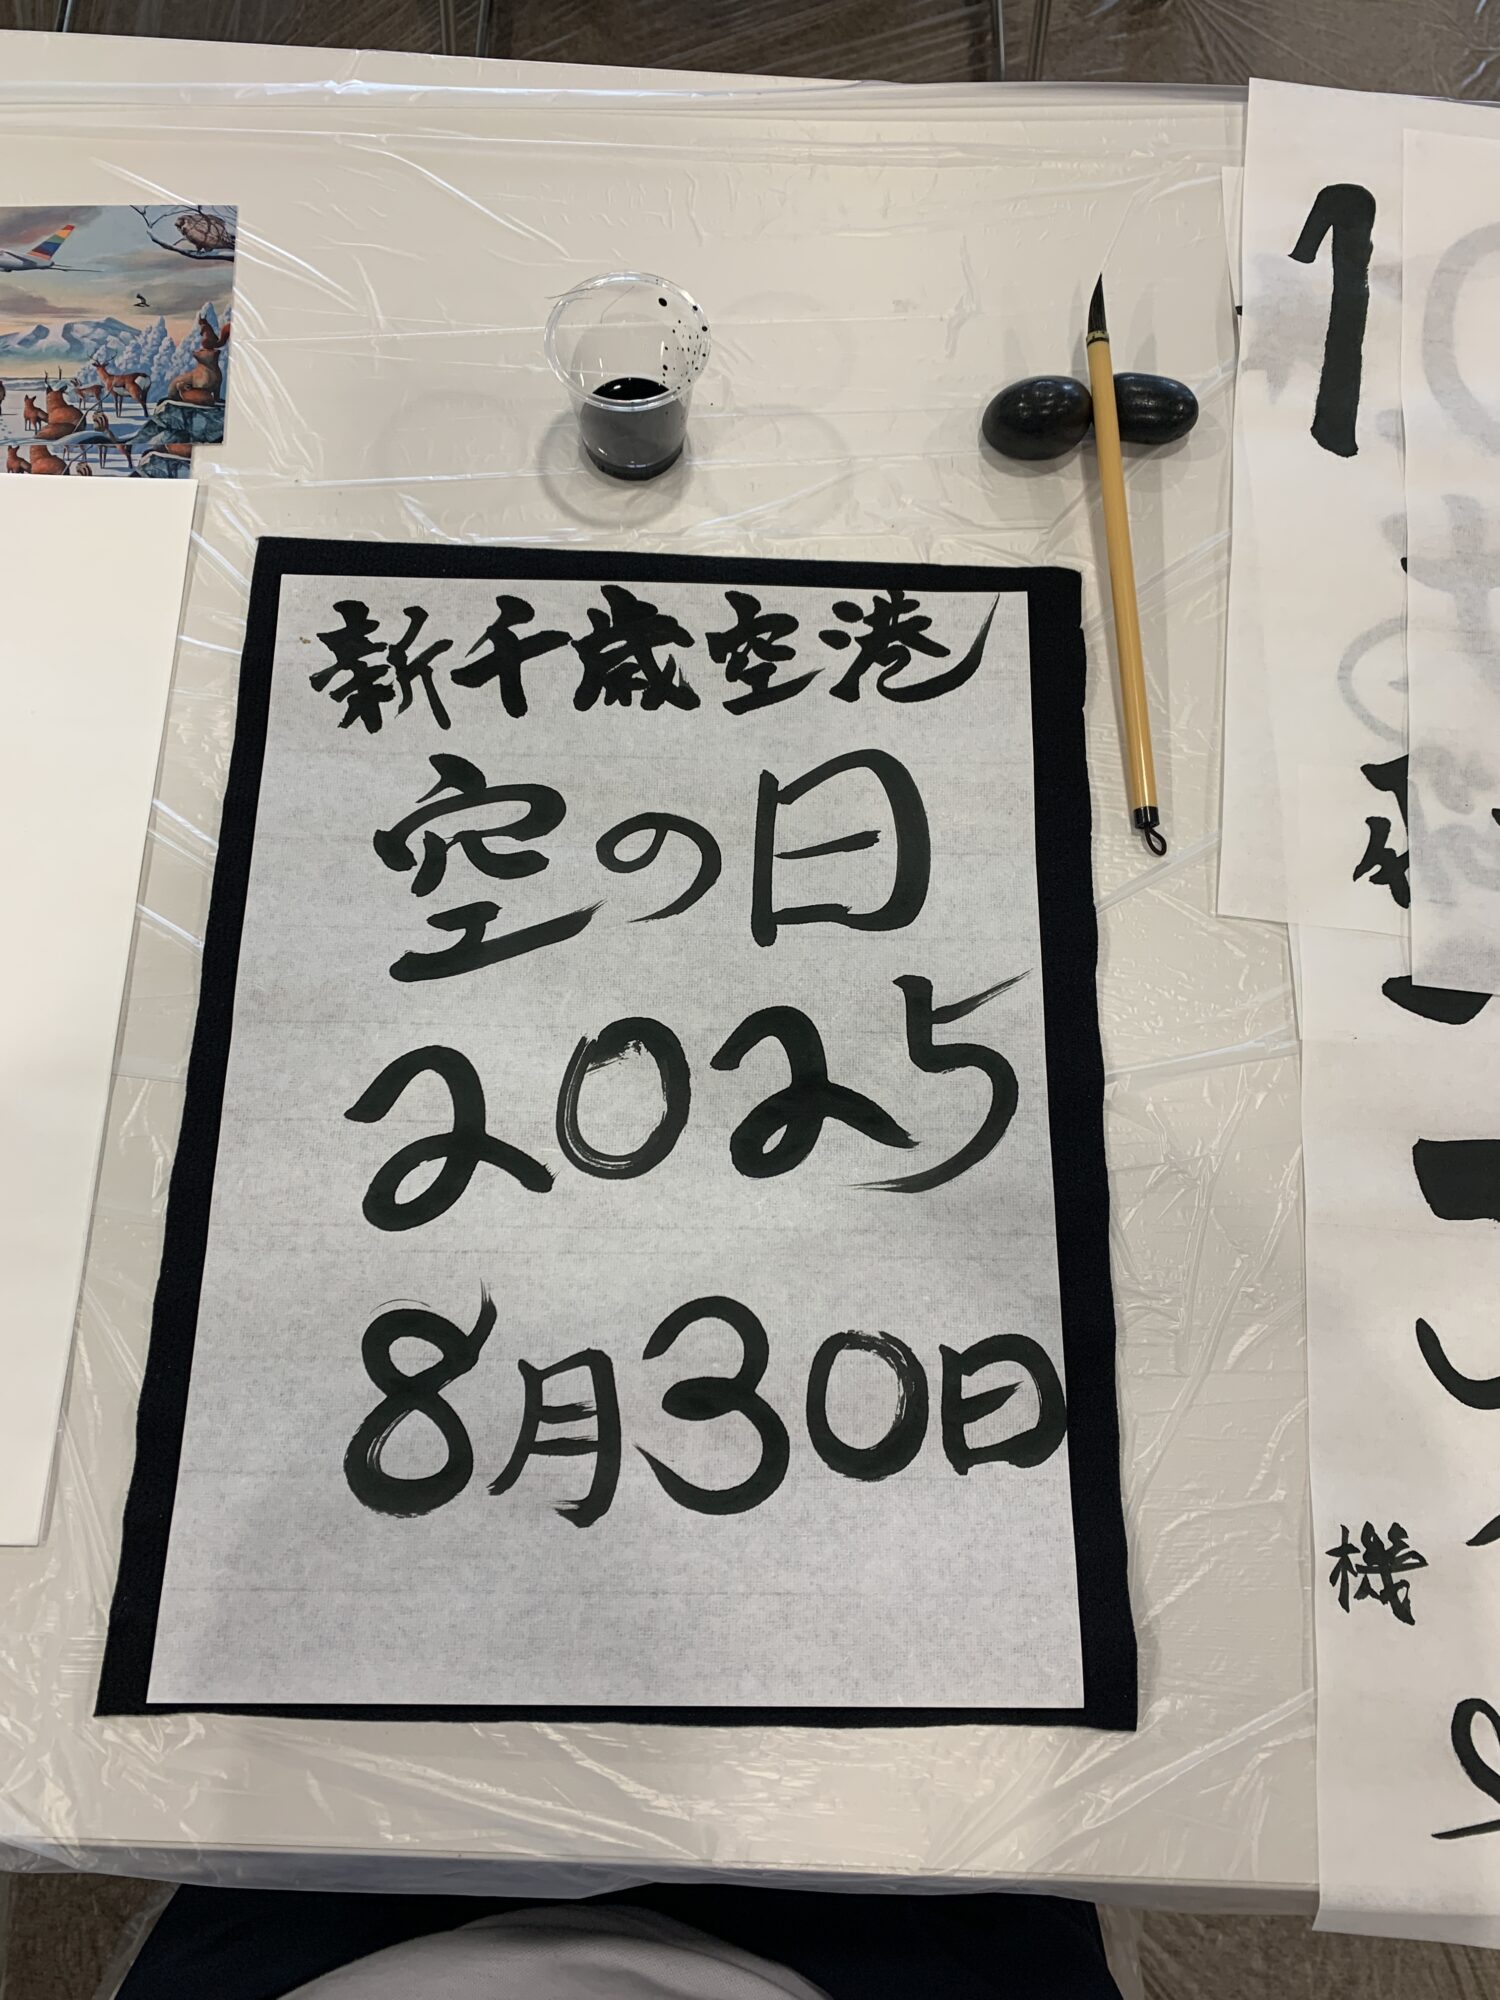 新千歳空港
空の日
2025
8月30日
機